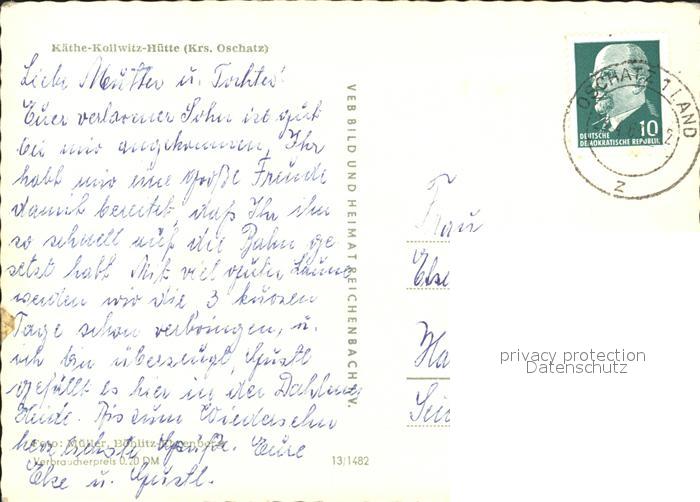 Käthe-Kollwitz-Hütte (Krs. Oschatz)
Liebe Mutter u. Tochter!
Euer verlorener Sohn ist gut
bei mir angekommen, Ihr
habt mir eine große Freude
damit bereitet, daß Ihr ihn
so schnell auf die Bahn ge
setzt habt. Mit viel guter Laune
werden wir die 3 kurzen
Tage schon verbringen, u.
ich bin überzeugt, Gustl
gefällt es hier in der Dahlener
Heide. Bis zum Wiedersehn
herzlichste Grüße. Eure
Else u. Gustl.
Foto: Müller, Böhlitz-Ehrenberg
Verbraucherpreis 0.20 DM
13/1482
VEB BILD UND HEIMAT REICHENBACH i. V.
OSCHATZ 1 LAND
10
DEUTSCHE
DEMOKRATISCHE REPUBLIK
Z
Frau
Else
Ha
privacy protection
Datenschutz